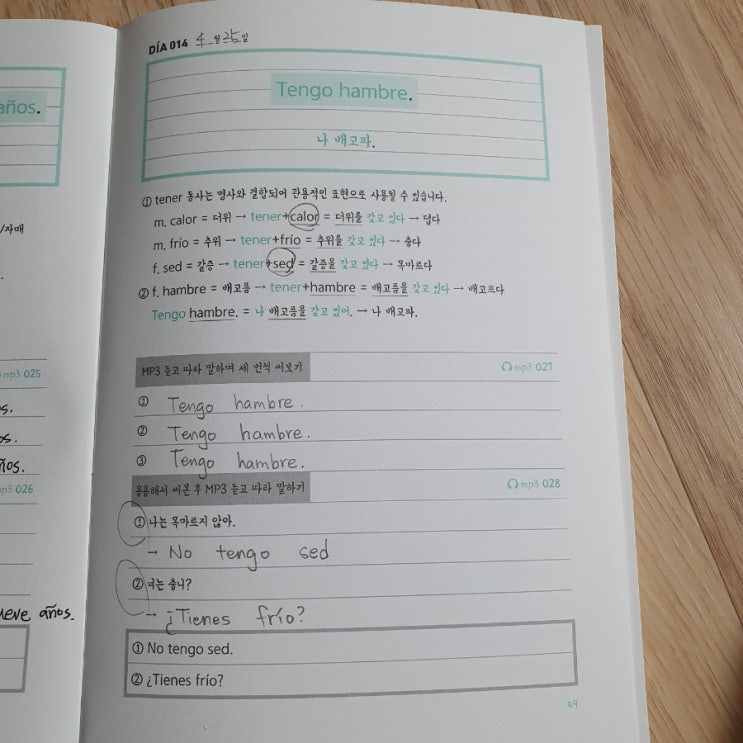 años.
/자매
mp3 025
os.
os.
ños.
mp3 026
ueve años.
DÍA 014 4월 25일
Tengo hambre.
나 배고파.
① tener 동사는 명사와 결합되어 관용적인 표현으로 사용될 수 있습니다.
m. calor = 더위 → tener+calor = 더위를 갖고 있다 → 덥다
m. frío = 추위 → tener+frío = 추위를 갖고 있다 → 춥다
f. sed = 갈증 → tener+sed = 갈증을 갖고 있다 → 목마르다
② f. hambre = 배고픔 → tener+hambre = 배고픔을 갖고 있다 → 배고프다
Tengo hambre. = 나 배고픔을 갖고 있어. → 나 배고파.
MP3 듣고 따라 말하며 세 번씩 써보기 mp3 027
① Tengo hambre.
② Tengo hambre.
③ Tengo hambre.
응용해서 써본 후 MP3 듣고 따라 말하기 mp3 028
① 나는 목마르지 않아.
→ No tengo sed
② 너는 춥니?
→ ¿Tienes frío?
① No tengo sed.
② ¿Tienes frío?
49